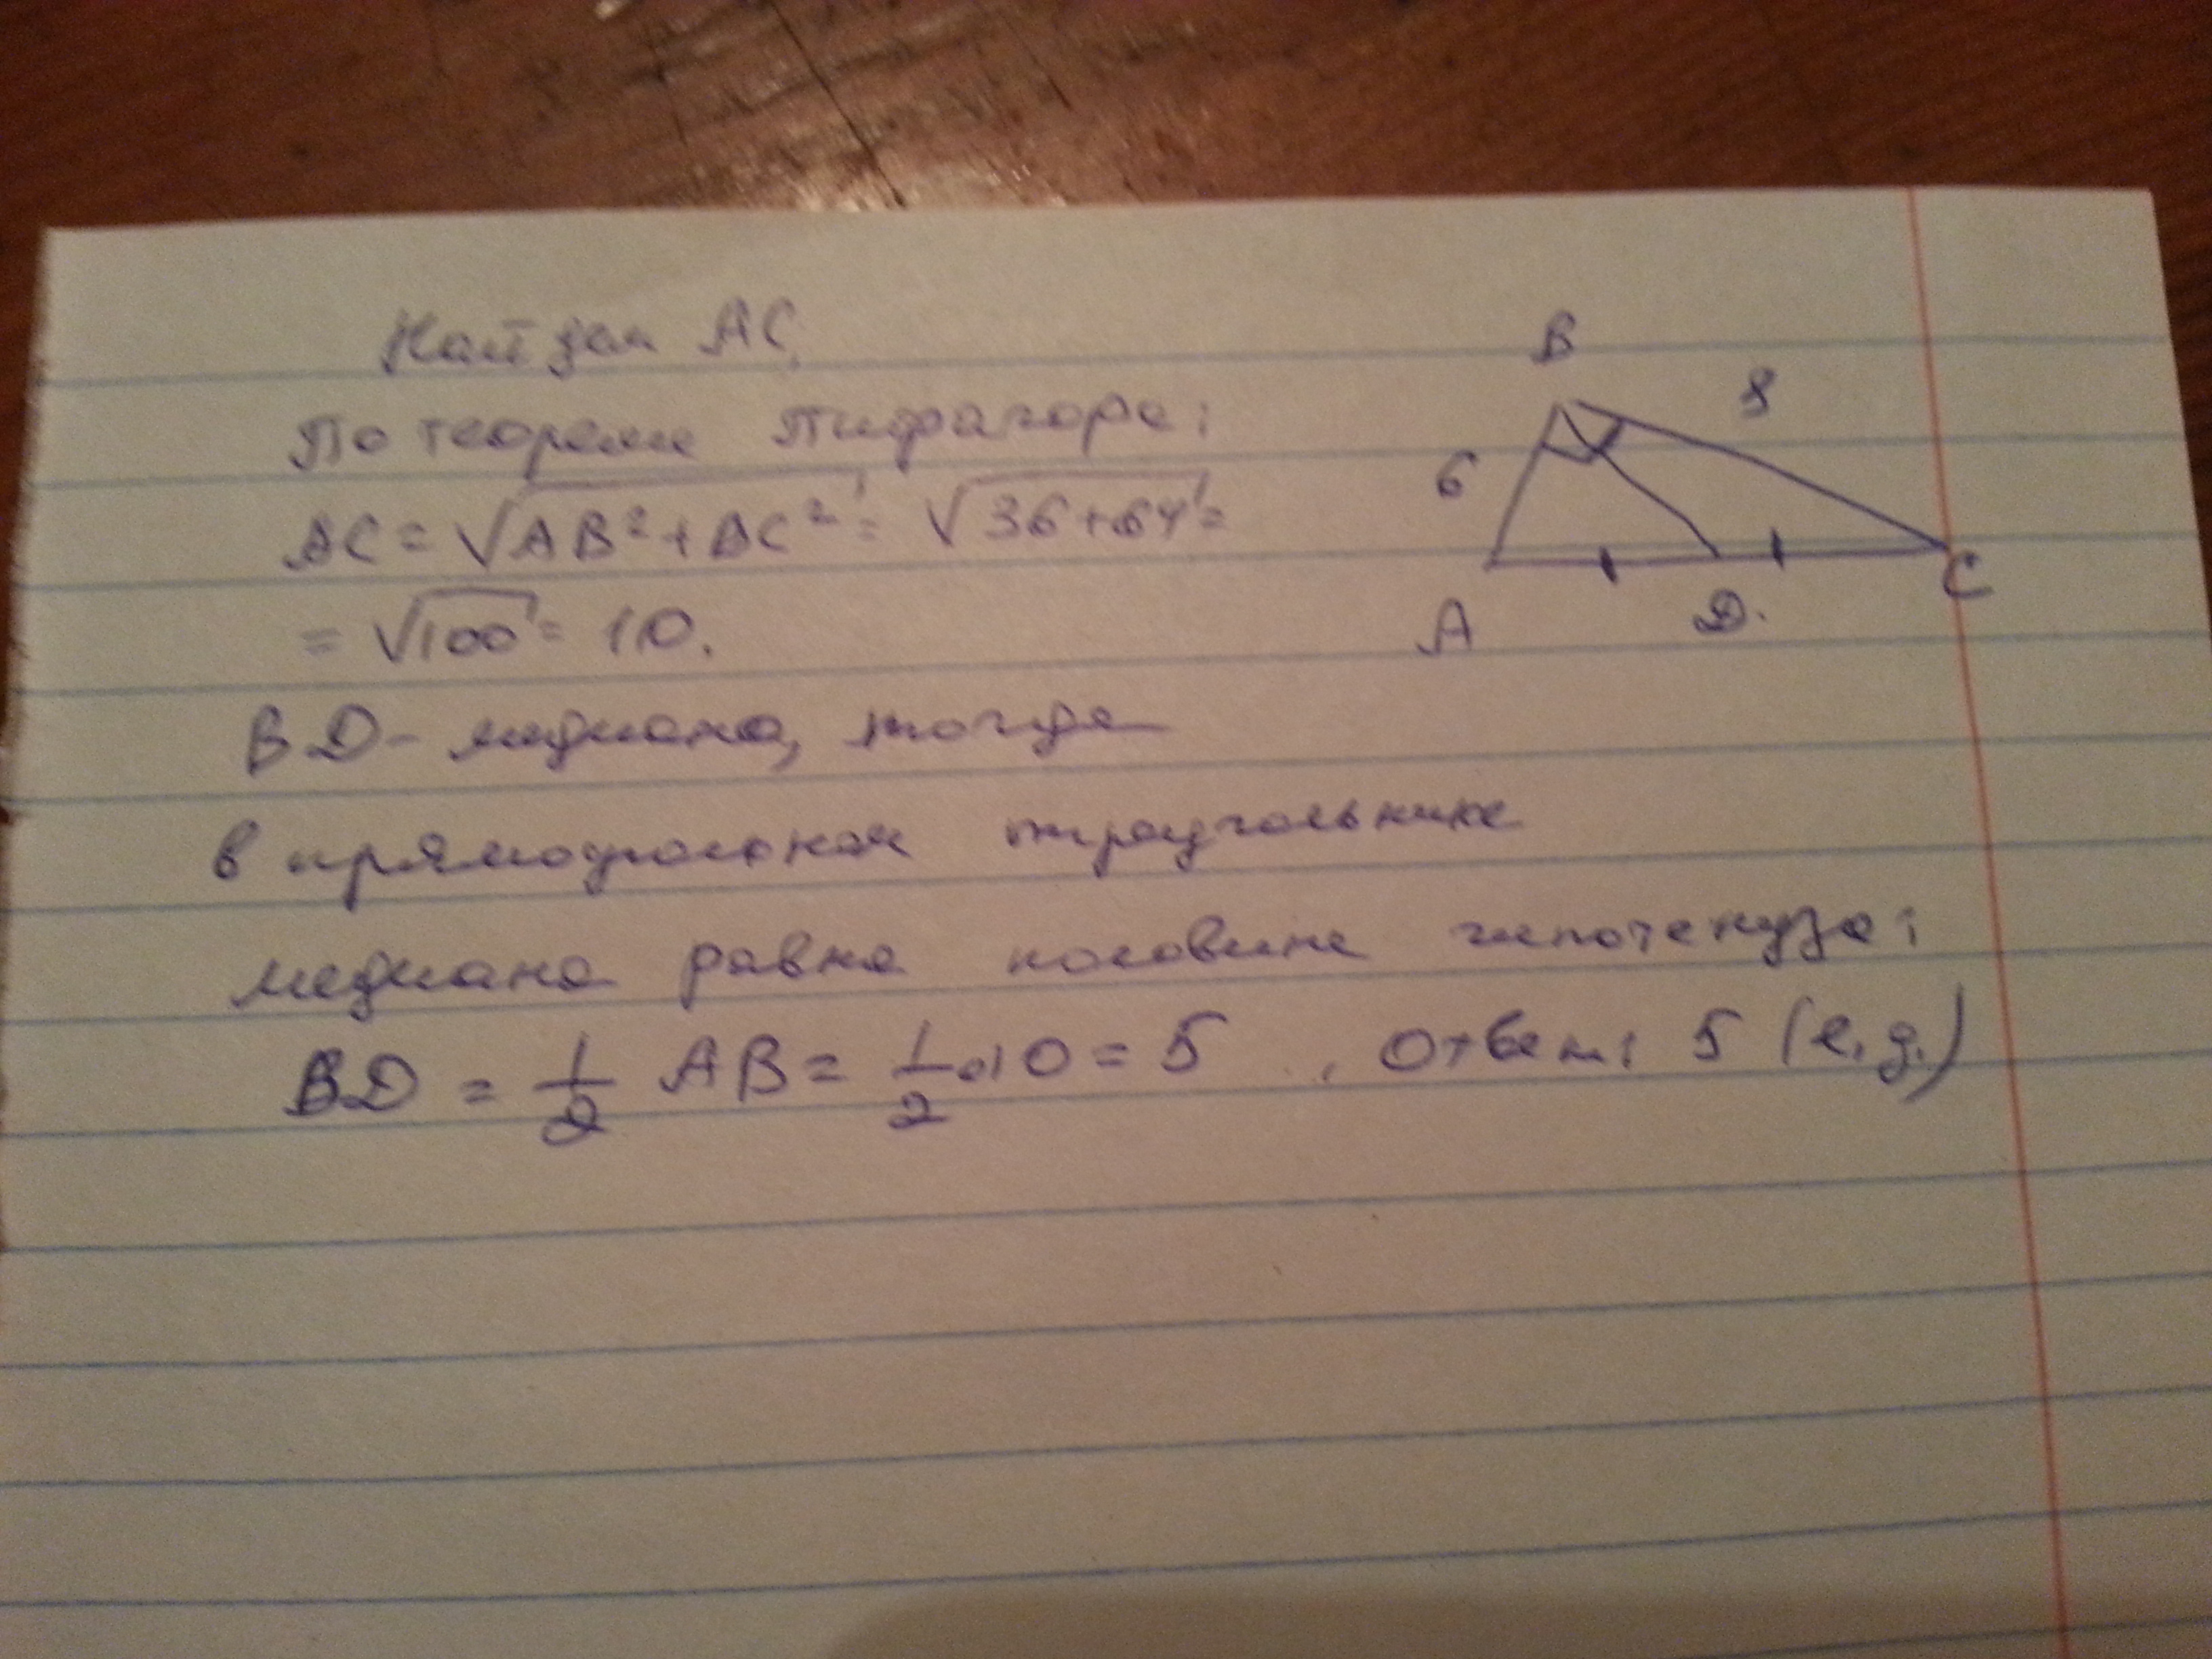 Найдем AC.
По теореме Пифагора:
AC = √AB² + BC² = √36+64 =
= √100 = 10.
BD - медиана, тогда
в прямоугольном треугольнике
медиана равна половине гипотенузе:
BD = 1/2 AB = 1/2 · 10 = 5 . Ответ: 5 (е.д.)
B
8
6
A
D.
C